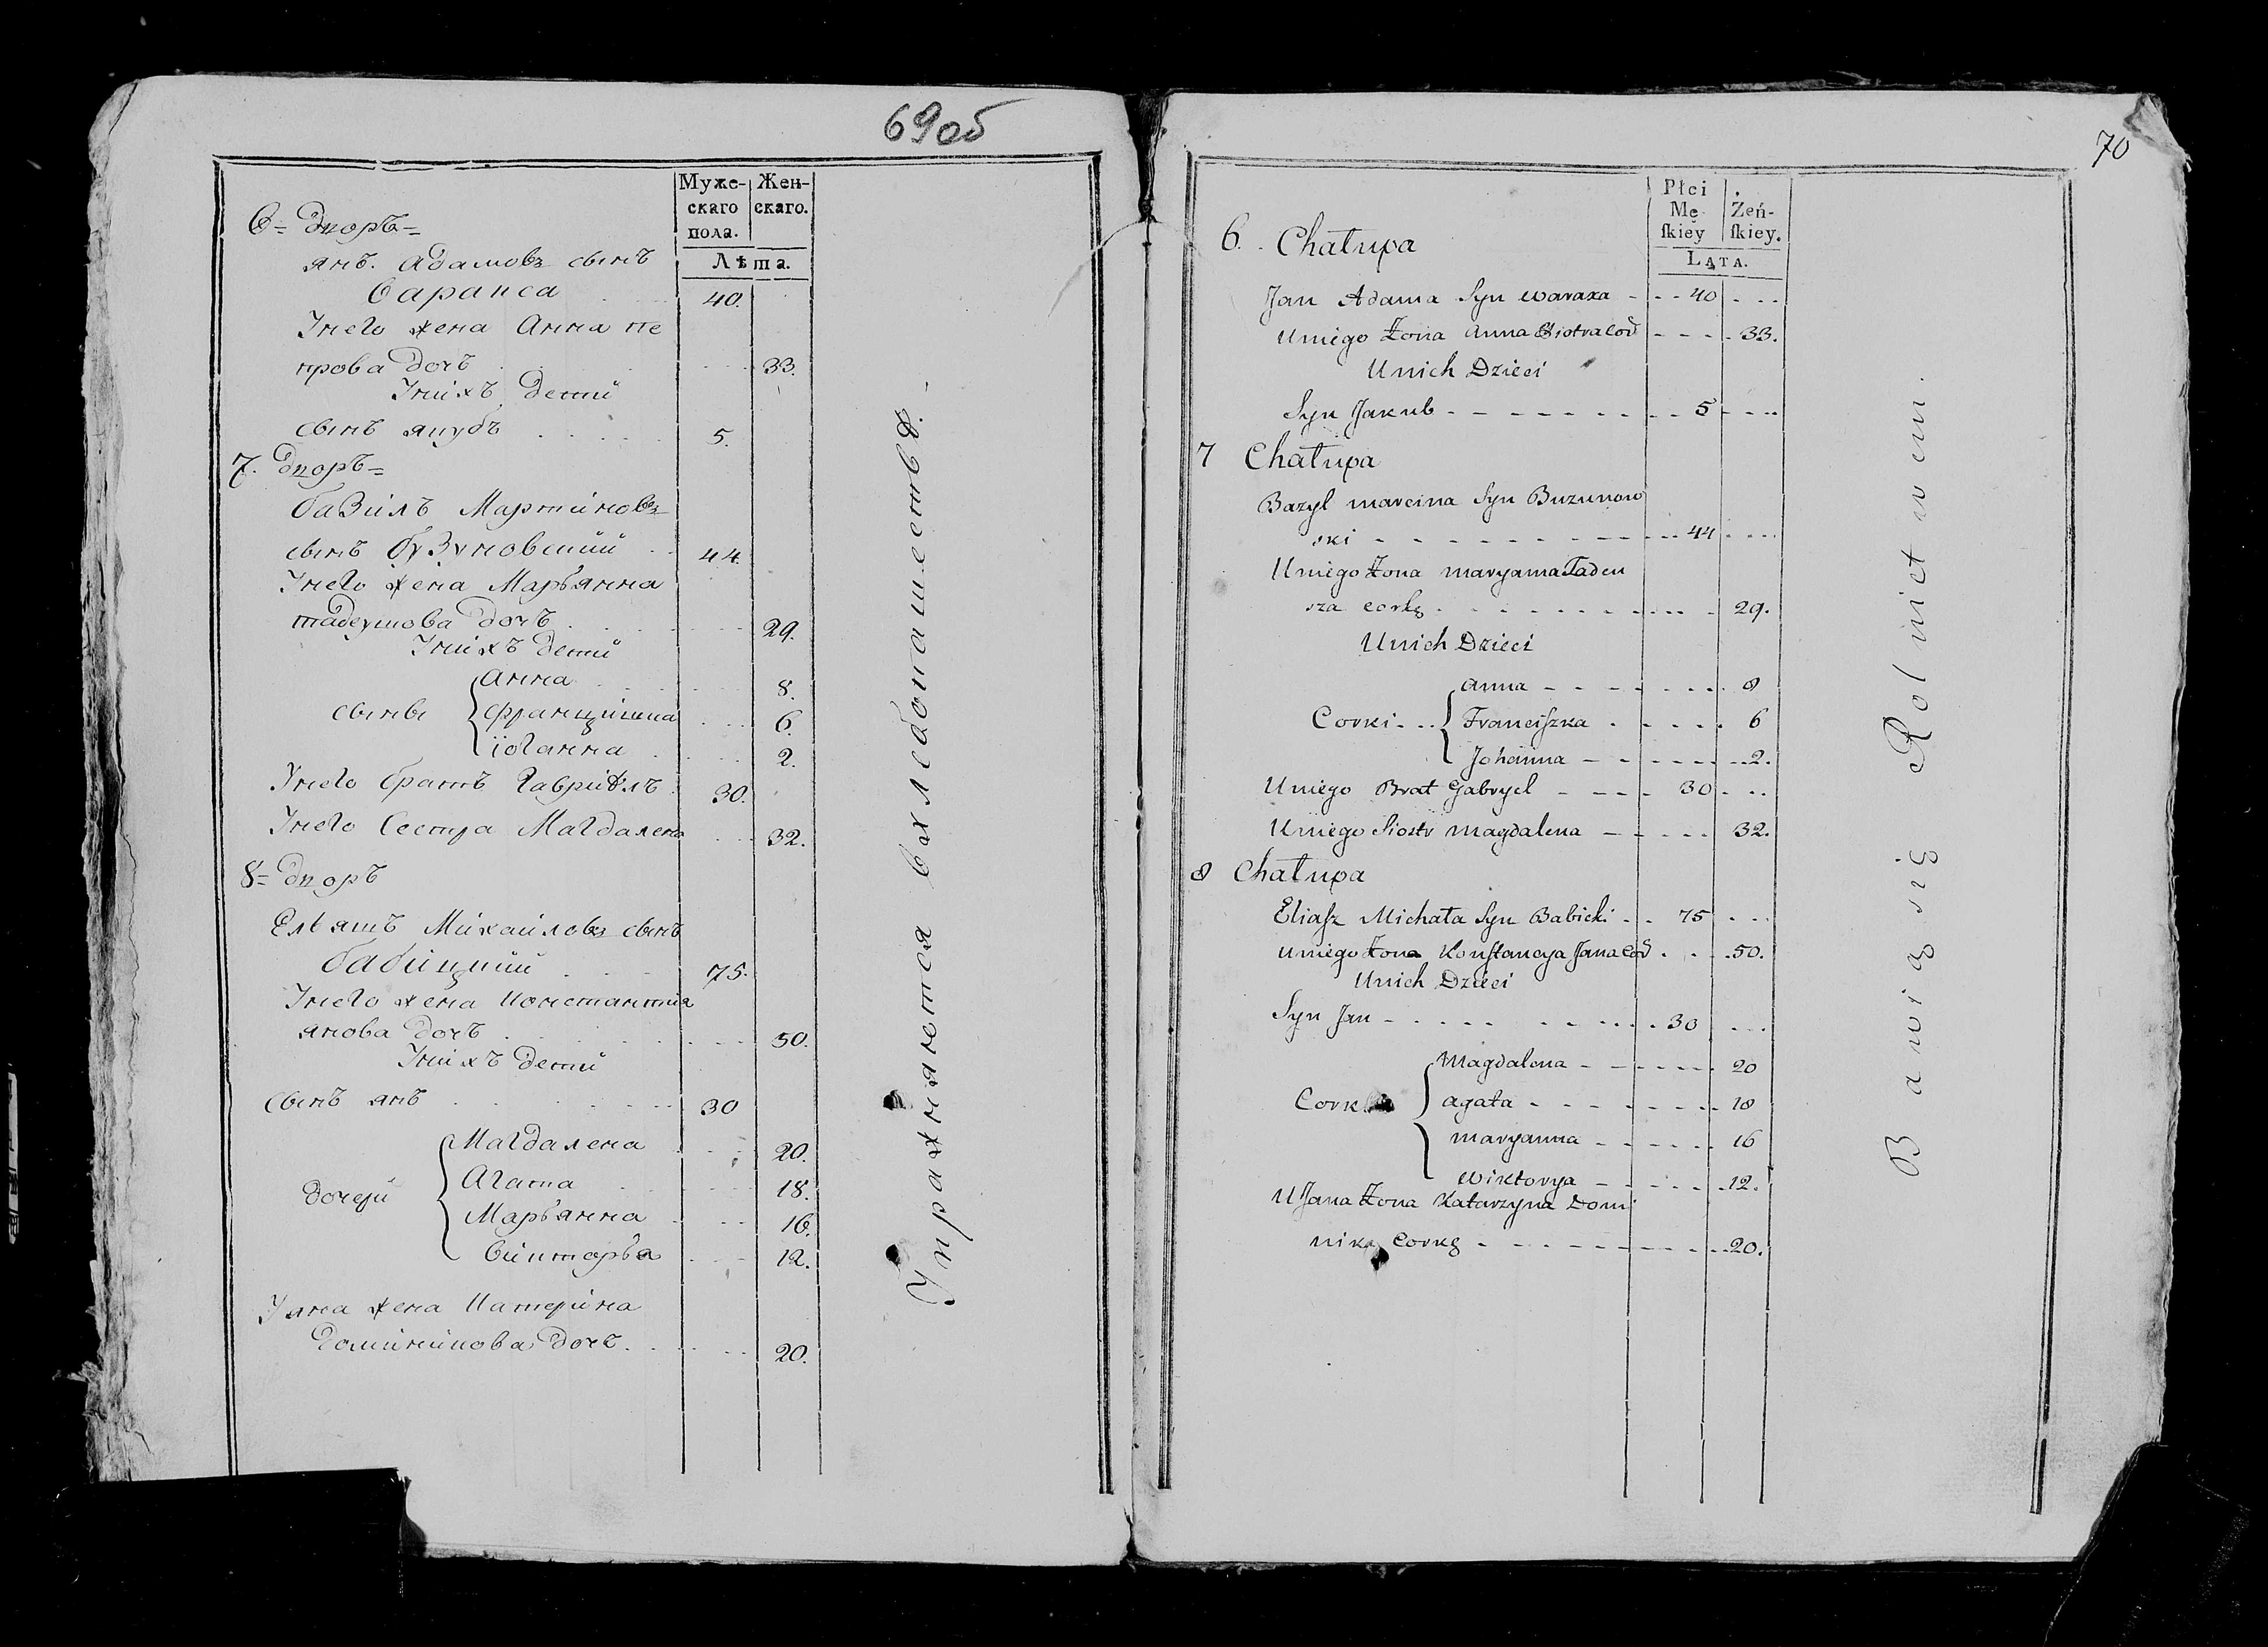 69об
Муже- Жен-
скаго скаго.
пола.
Лѣта.
6= Дворъ=
янъ. адамовъ сынъ
Варакса 40.
Унего жена Анна пе
трова дочъ 33.
Унихъ детии
сынъ якубъ 5.
7. Дворъ=
базилъ Мартиновъ
сынъ бузуновскии 44.
Унего жена Марьянна
тадеушова дочъ 29.
Унихъ детии
Анна 8.
сыны францишка 6.
iоганна 2.
Унего братъ Гавриѣлъ 30.
Унего Сестра Магдалена 32.
8= Дворъ
Ельяшъ Михаиловъ сынъ
бабицкии 75.
Унего жена Константия
янова дочъ 50.
Унихъ детии
Сынъ янъ 30
Магдалена 20.
Агата 18.
дочери
Марьянна 16.
Викторья 12.
Уяна жена Катерина
доминикова дочъ. 20.
Упражняется вхлебопашествѣ.
70
Płci .
Mę Żeń-
skiey skiey.
LATA.
6. Chałupa
Jan Adama Syn waraxa 40
Uniego Żona Anna Piotra Cor 33.
Unich Dzieci
Syn Jakub 5
7 Chałupa
Bazyl marcina Syn Buzunow
ski 44
Uniego Żona maryanna Tadeu
sza corkę 29.
Unich Dzieci
anna 8
Corki Franciszka 6
Johanna 2.
Uniego Brat Gabryel 30
Uniego Siostr magdalena 32.
8 Chałupa
Eliasz Michała Syn Babicki 75
Uniego Żona Konstancya Jana Cor 50.
Unich Dzieci
Syn Jan 30
Magdalena 20
Corki agata 18
maryanna 16
wiktorya 12.
U Jana Żona Katarzyna Domi
nika Corkę 20.
Bawią się Rolnictwem.